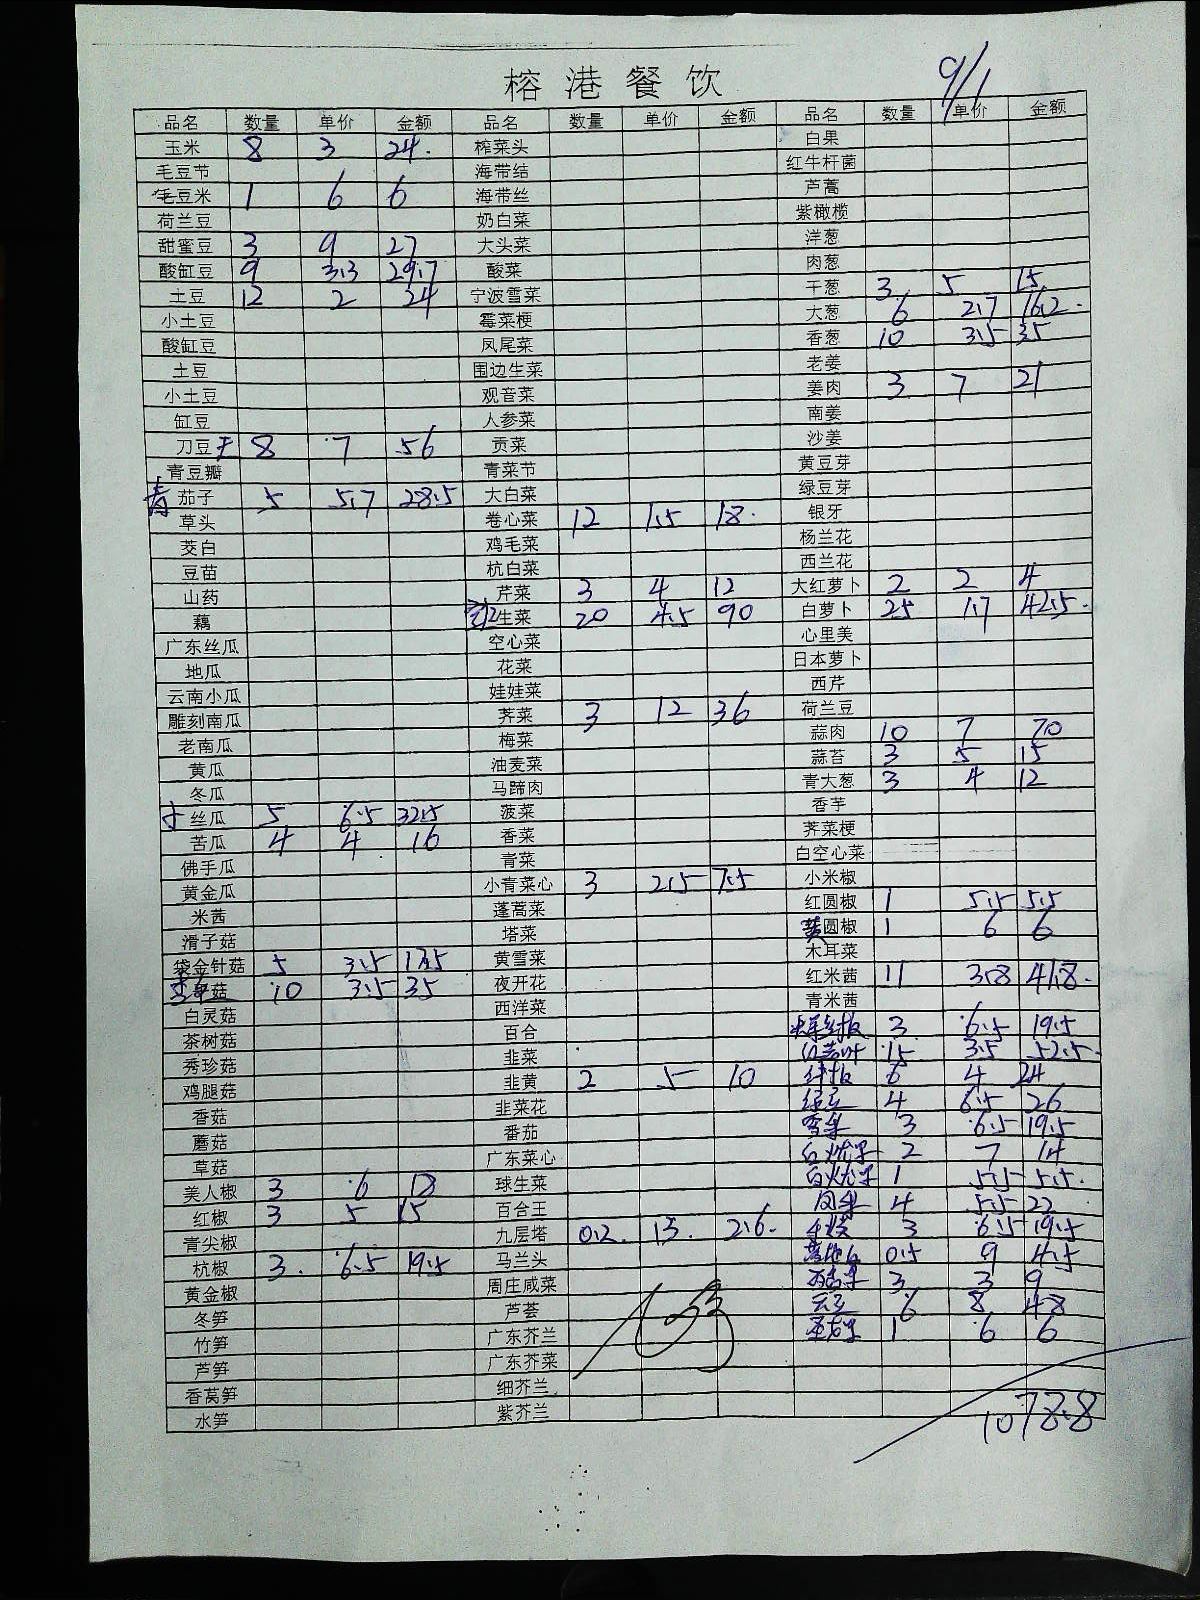 榕港餐饮
9/1
品名 数量 单价 金额 品名 数量 单价 金额 品名 数量 单价 金额
玉米 8 3 24. 榨菜头 白果
毛豆节 海带结 红牛杆菌
毛豆米 1 6 6 海带丝 芦蒿
荷兰豆 奶白菜 紫橄榄
甜蜜豆 3 9 27 大头菜 洋葱
酸缸豆 9 3.3 29.7 酸菜 肉葱
土豆 12 2 24 宁波雪菜 干葱 3 5 15
小土豆 霉菜梗 大葱 6 2.7 16.2
酸缸豆 凤尾菜 香葱 10 3.5 35
土豆 围边生菜 老姜
小土豆 观音菜 姜肉 3 7 21
缸豆 人参菜 南姜
刀豆 8 7 56 贡菜 沙姜
青豆瓣 青菜节 黄豆芽
青茄子 5 5.7 28.5 大白菜 绿豆芽
草头 卷心菜 12 1.5 18. 银牙
茭白 鸡毛菜 杨兰花
豆苗 杭白菜 西兰花
山药 芹菜 3 4 12 大红萝卜 2 2 4
藕 红生菜 20 4.5 90 白萝卜 25 1.7 42.5
广东丝瓜 空心菜 心里美
地瓜 花菜 日本萝卜
云南小瓜 娃娃菜 西芹
雕刻南瓜 荠菜 3 12 36 荷兰豆
老南瓜 梅菜 蒜肉 10 7 70
黄瓜 油麦菜 蒜苔 3 5 15
冬瓜 马蹄肉 青大葱 3 4 12
丝瓜 5 6.5 32.5 菠菜 香芋
苦瓜 4 4 16 香菜 荠菜梗
佛手瓜 青菜 白空心菜
黄金瓜 小青菜心 3 2.5 7.5 小米椒
米茜 蓬蒿菜 红圆椒 1 5.5 5.5
滑子菇 塔菜 黄圆椒 1 6 6
袋金针菇 5 3.5 17.5 黄雪菜 木耳菜
菇 10 3.5 35 夜开花 红米茜 11 3.8 41.8
白灵菇 西洋菜 青米茜
茶树菇 百合 3 6.5 19.5
秀珍菇 韭菜 15 3.5 52.5
鸡腿菇 韭黄 2 5 10 6 4 24
香菇 韭菜花 绿豆 4 6.5 26
蘑菇 番茄 3 6.5 19.5
草菇 广东菜心 2 7 14
美人椒 3 6 18 球生菜 1 5.5 5.5
红椒 3 5 15 百合王 4 5.5 22
青尖椒 九层塔 0.2 13 2.6 3 6.5 19.5
杭椒 3 6.5 19.5 马兰头 0.5 9 4.5
黄金椒 周庄咸菜 3 3 9
冬笋 芦荟 6 8 48
竹笋 广东芥兰 1 6 6
芦笋 广东芥菜
香莴笋 细芥兰
水笋 紫芥兰 1078.8